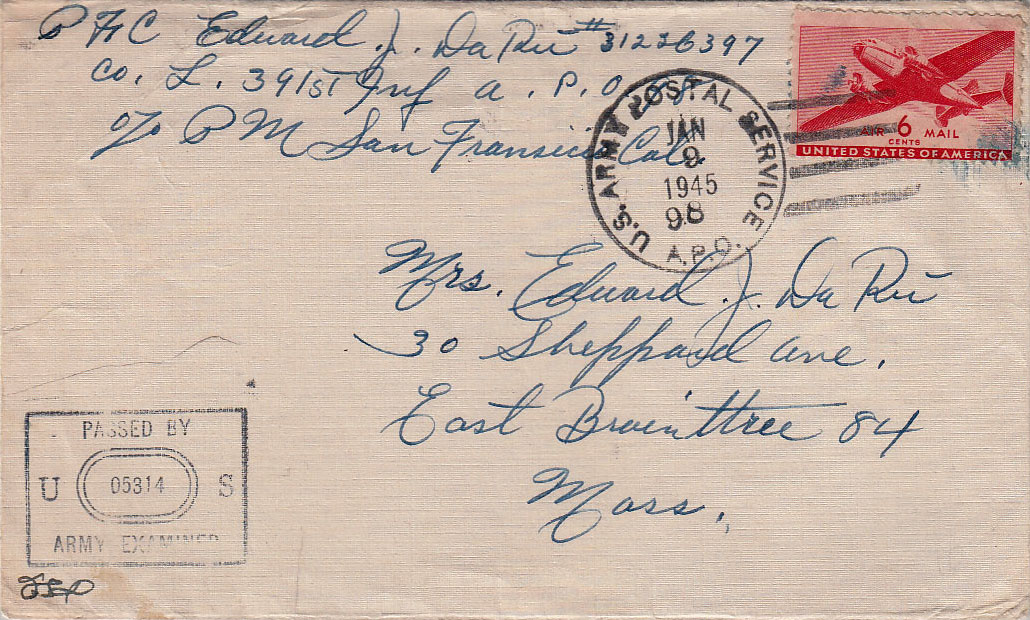 PFC Edward J. DaRu #31226397
Co. L. 391st Inf A.P.O.
c/o PM San Fransico Cal.
U.S. ARMY POSTAL SERVICE
JAN
9
1945
98
A.P.O.
AIR 6 MAIL
CENTS
UNITED STATES OF AMERICA
Mrs. Edward J. Da Ru
30 Sheppard Ave.
East Brainttree 84
Mass.
PASSED BY
U 05314 S
ARMY EXAMINER